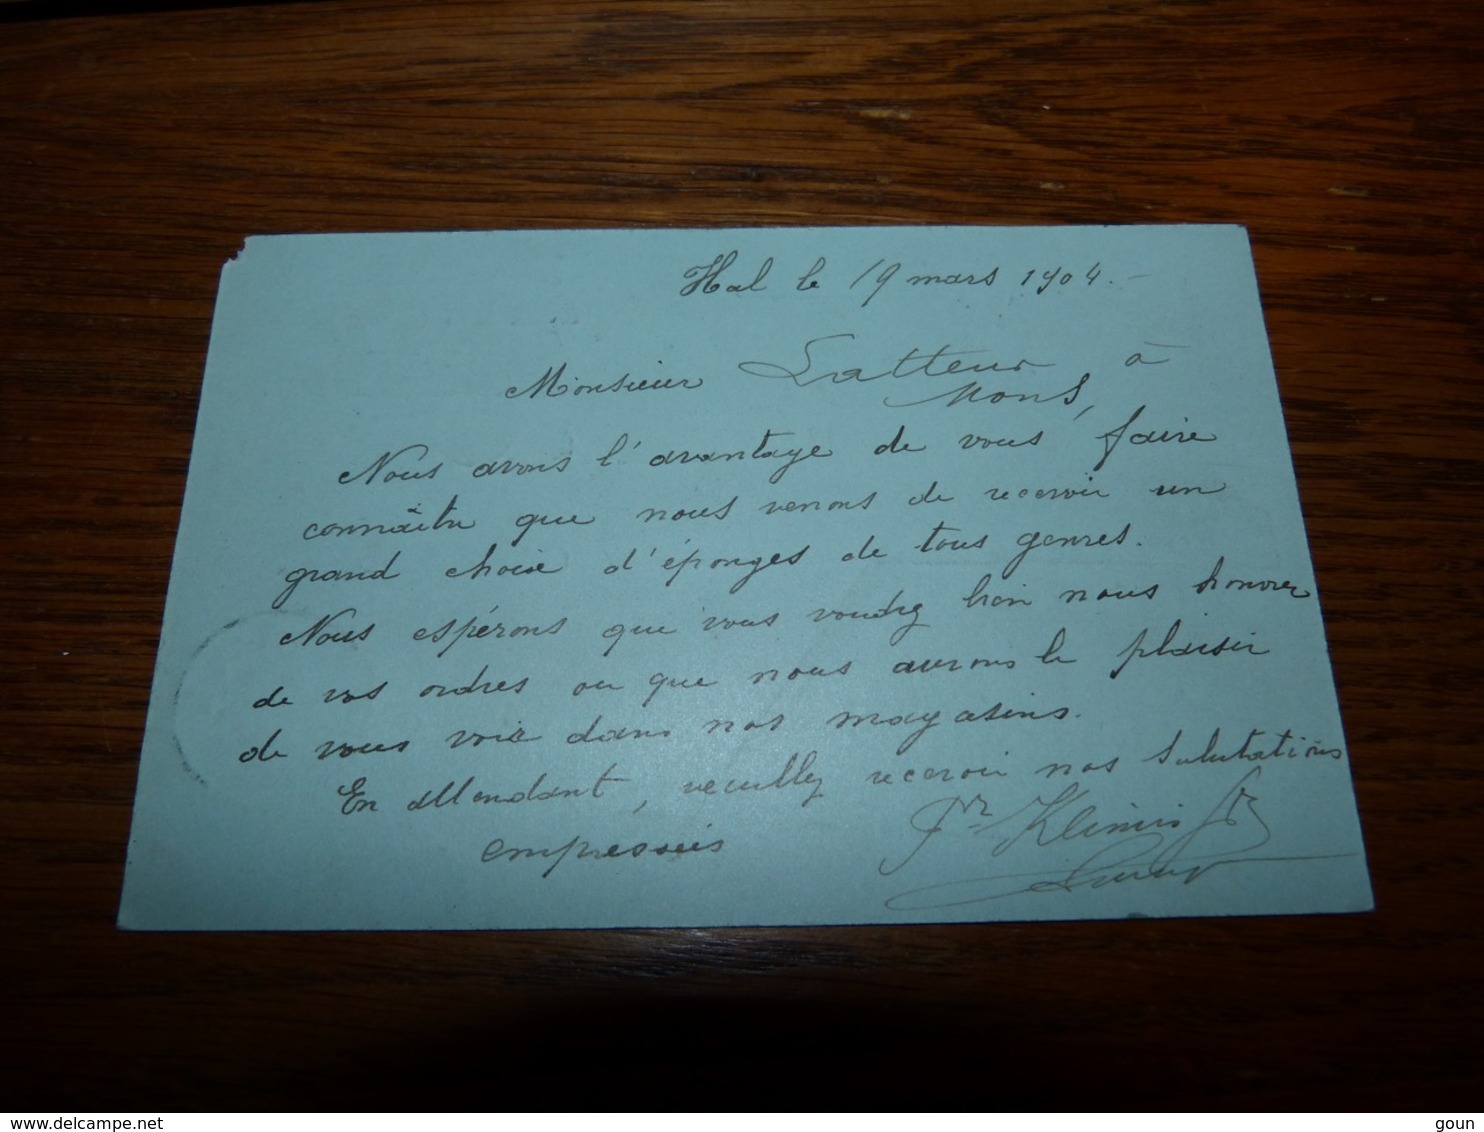 Hal le 19 mars 1904. -
Monsieur Latteur, à
Mons,
Nous avons l'avantage de vous faire
connaître que nous venons de recevoir un
grand choix d'éponges de tous genres.
Nous espérons que vous voudrez bien nous honorer
de vos ordres ou que nous aurons le plaisir
de vous voir dans nos magasins.
En attendant, veuillez recevoir nos salutations
empressées
delcampe.net
goun